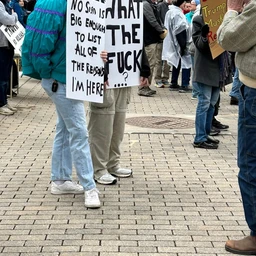 NO SIGN IS
BIG ENOUGH
TO LIST
ALL OF
THE REASONS
I'M HERE!
WHAT
THE
FUCK
...?